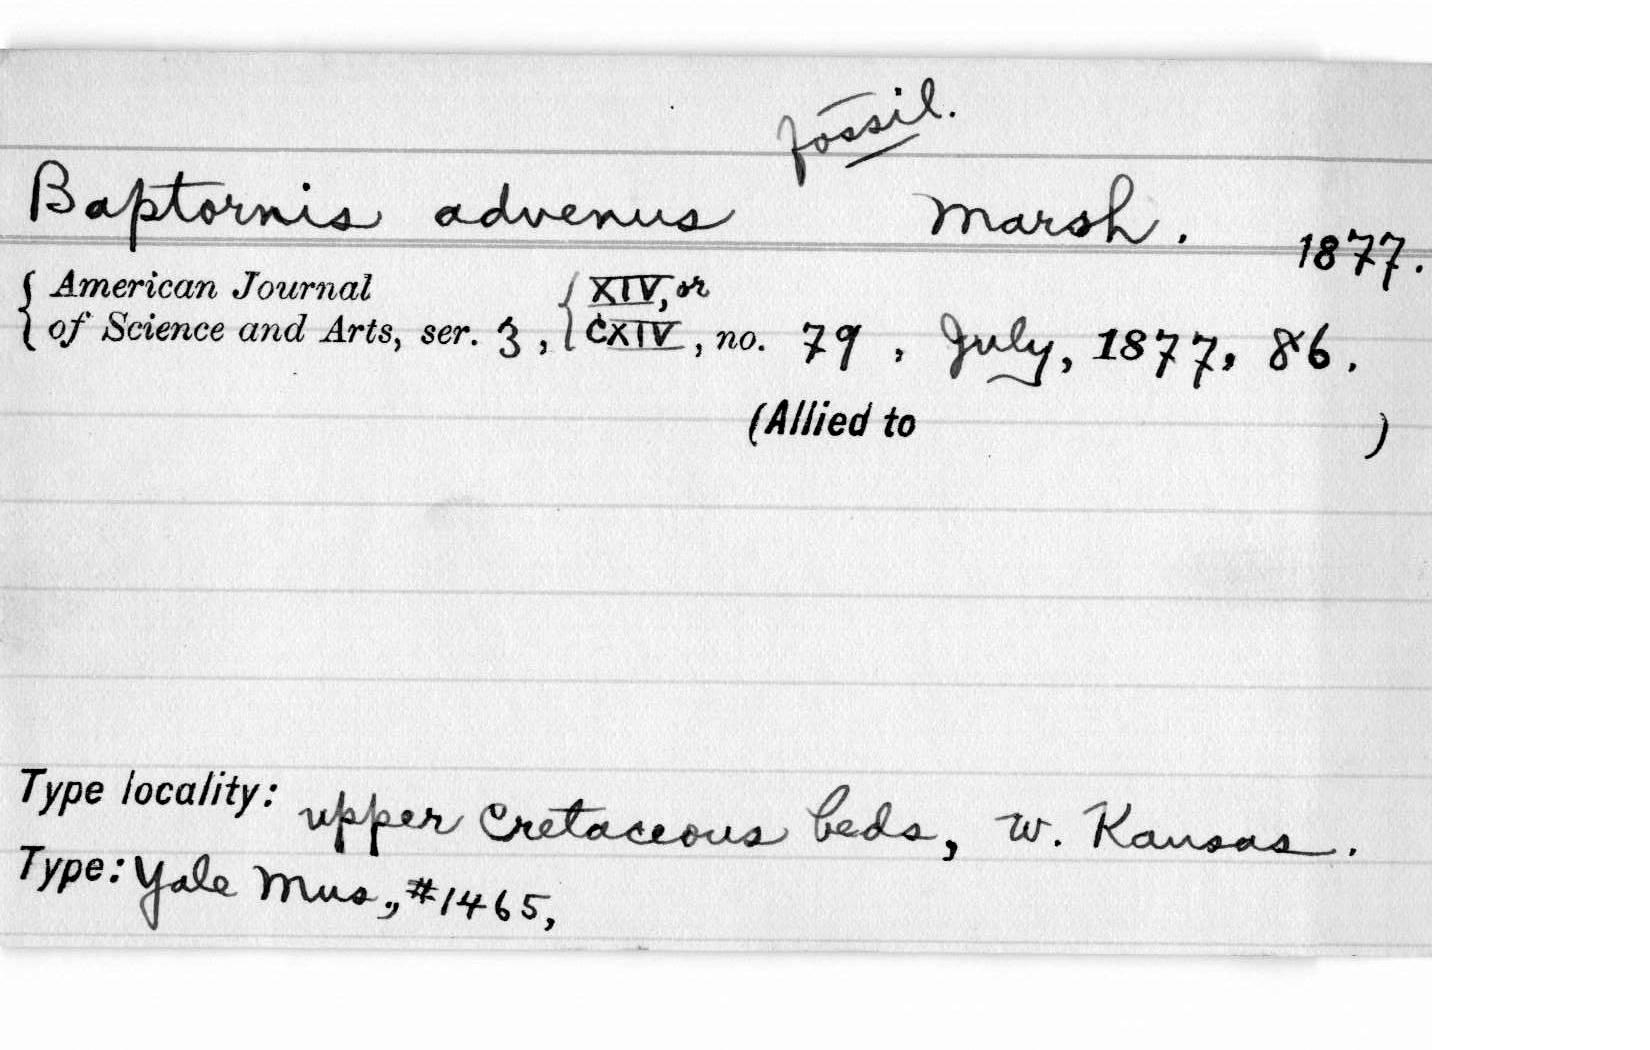 fossil.
Baptornis advenus Marsh. 1877.
{ American Journal { XIV, or
of Science and Arts, ser. 3, CXIV, no. 79, July, 1877, 86.
(Allied to )
Type locality: upper Cretaceous beds, w. Kansas.
Type: Yale Mus., #1465,